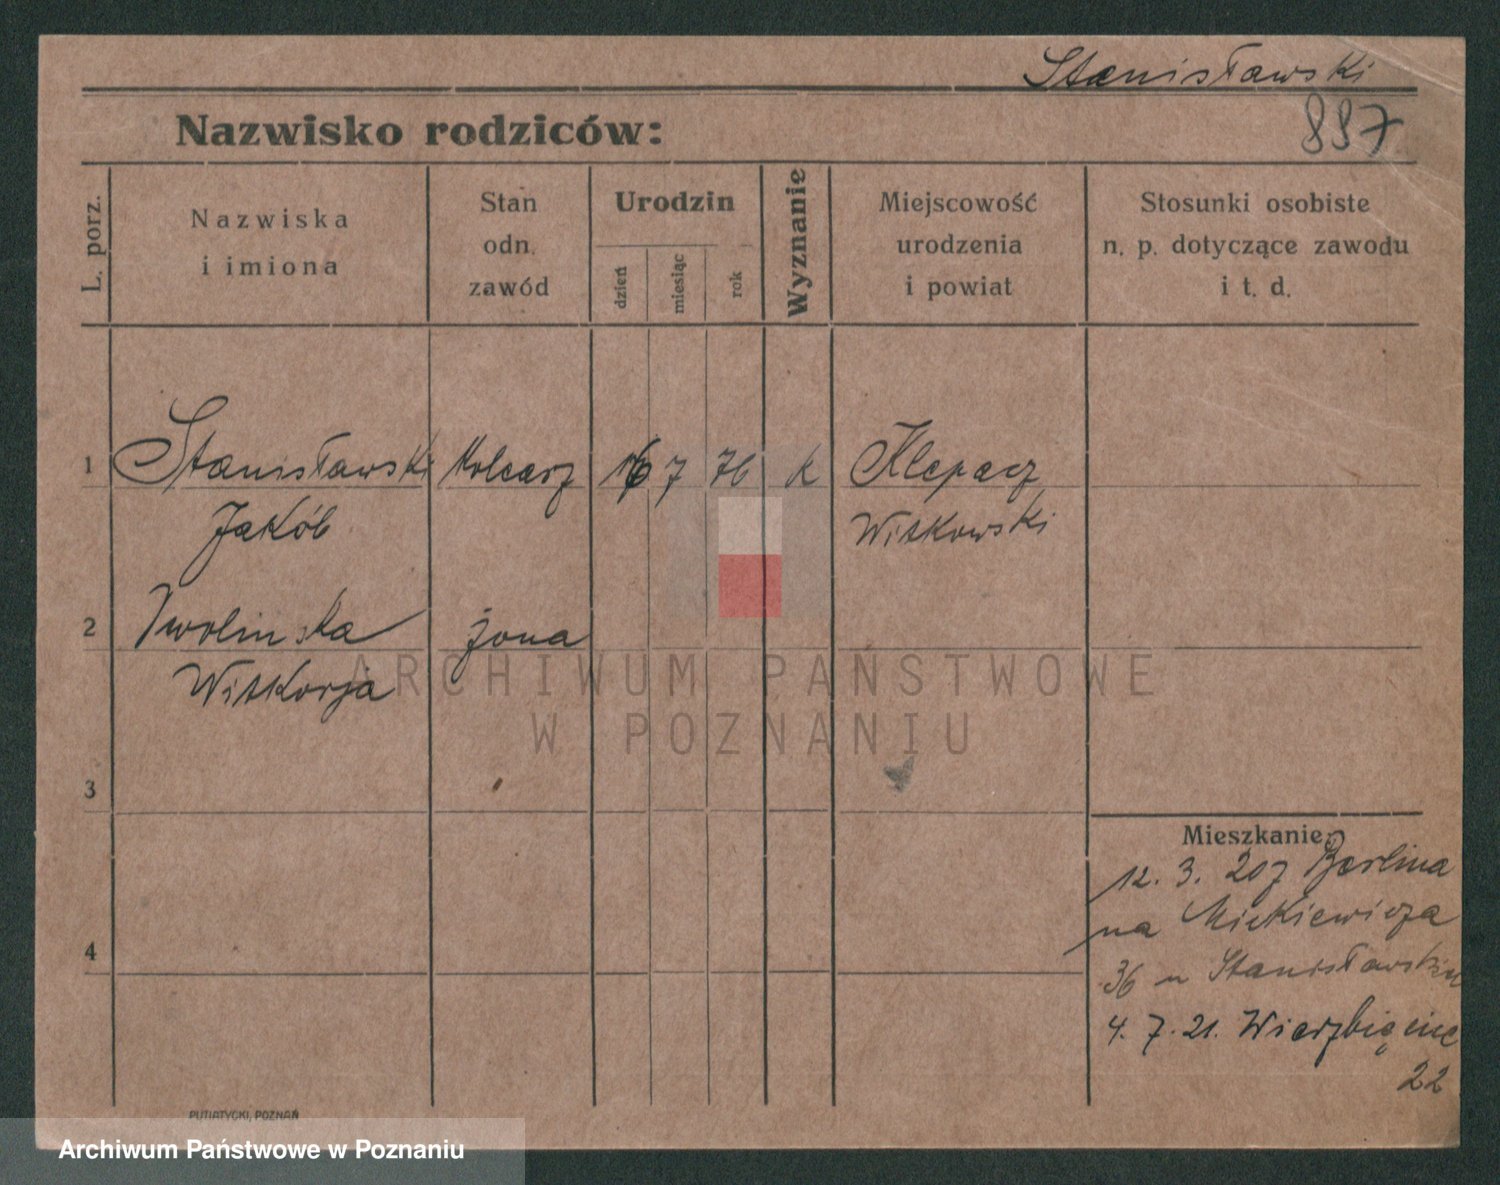 Stanisławski
887
Nazwisko rodziców:
L. porz.
Nazwiska
i imiona
Stan
odn.
zawód
Urodzin
dzień
miesiąc
rok
Wyznanie
Miejscowość
urodzenia
i powiat
Stosunki osobiste
n. p. dotyczące zawodu
i t. d.
1 Stanisławski 7 76 k
Jakób Witkowski
2 żona
Witkorja
3
4
Mieszkanie
12. 3. 20 z Berlina
na Mickiewicza
36 u Stanisławskiu
4. 7. 21. Wierzbięcice
22
PUTIATYCKI, POZNAŃ
ARCHIWUM PAŃSTWOWE
W POZNANIU
Archiwum Państwowe w Poznaniu